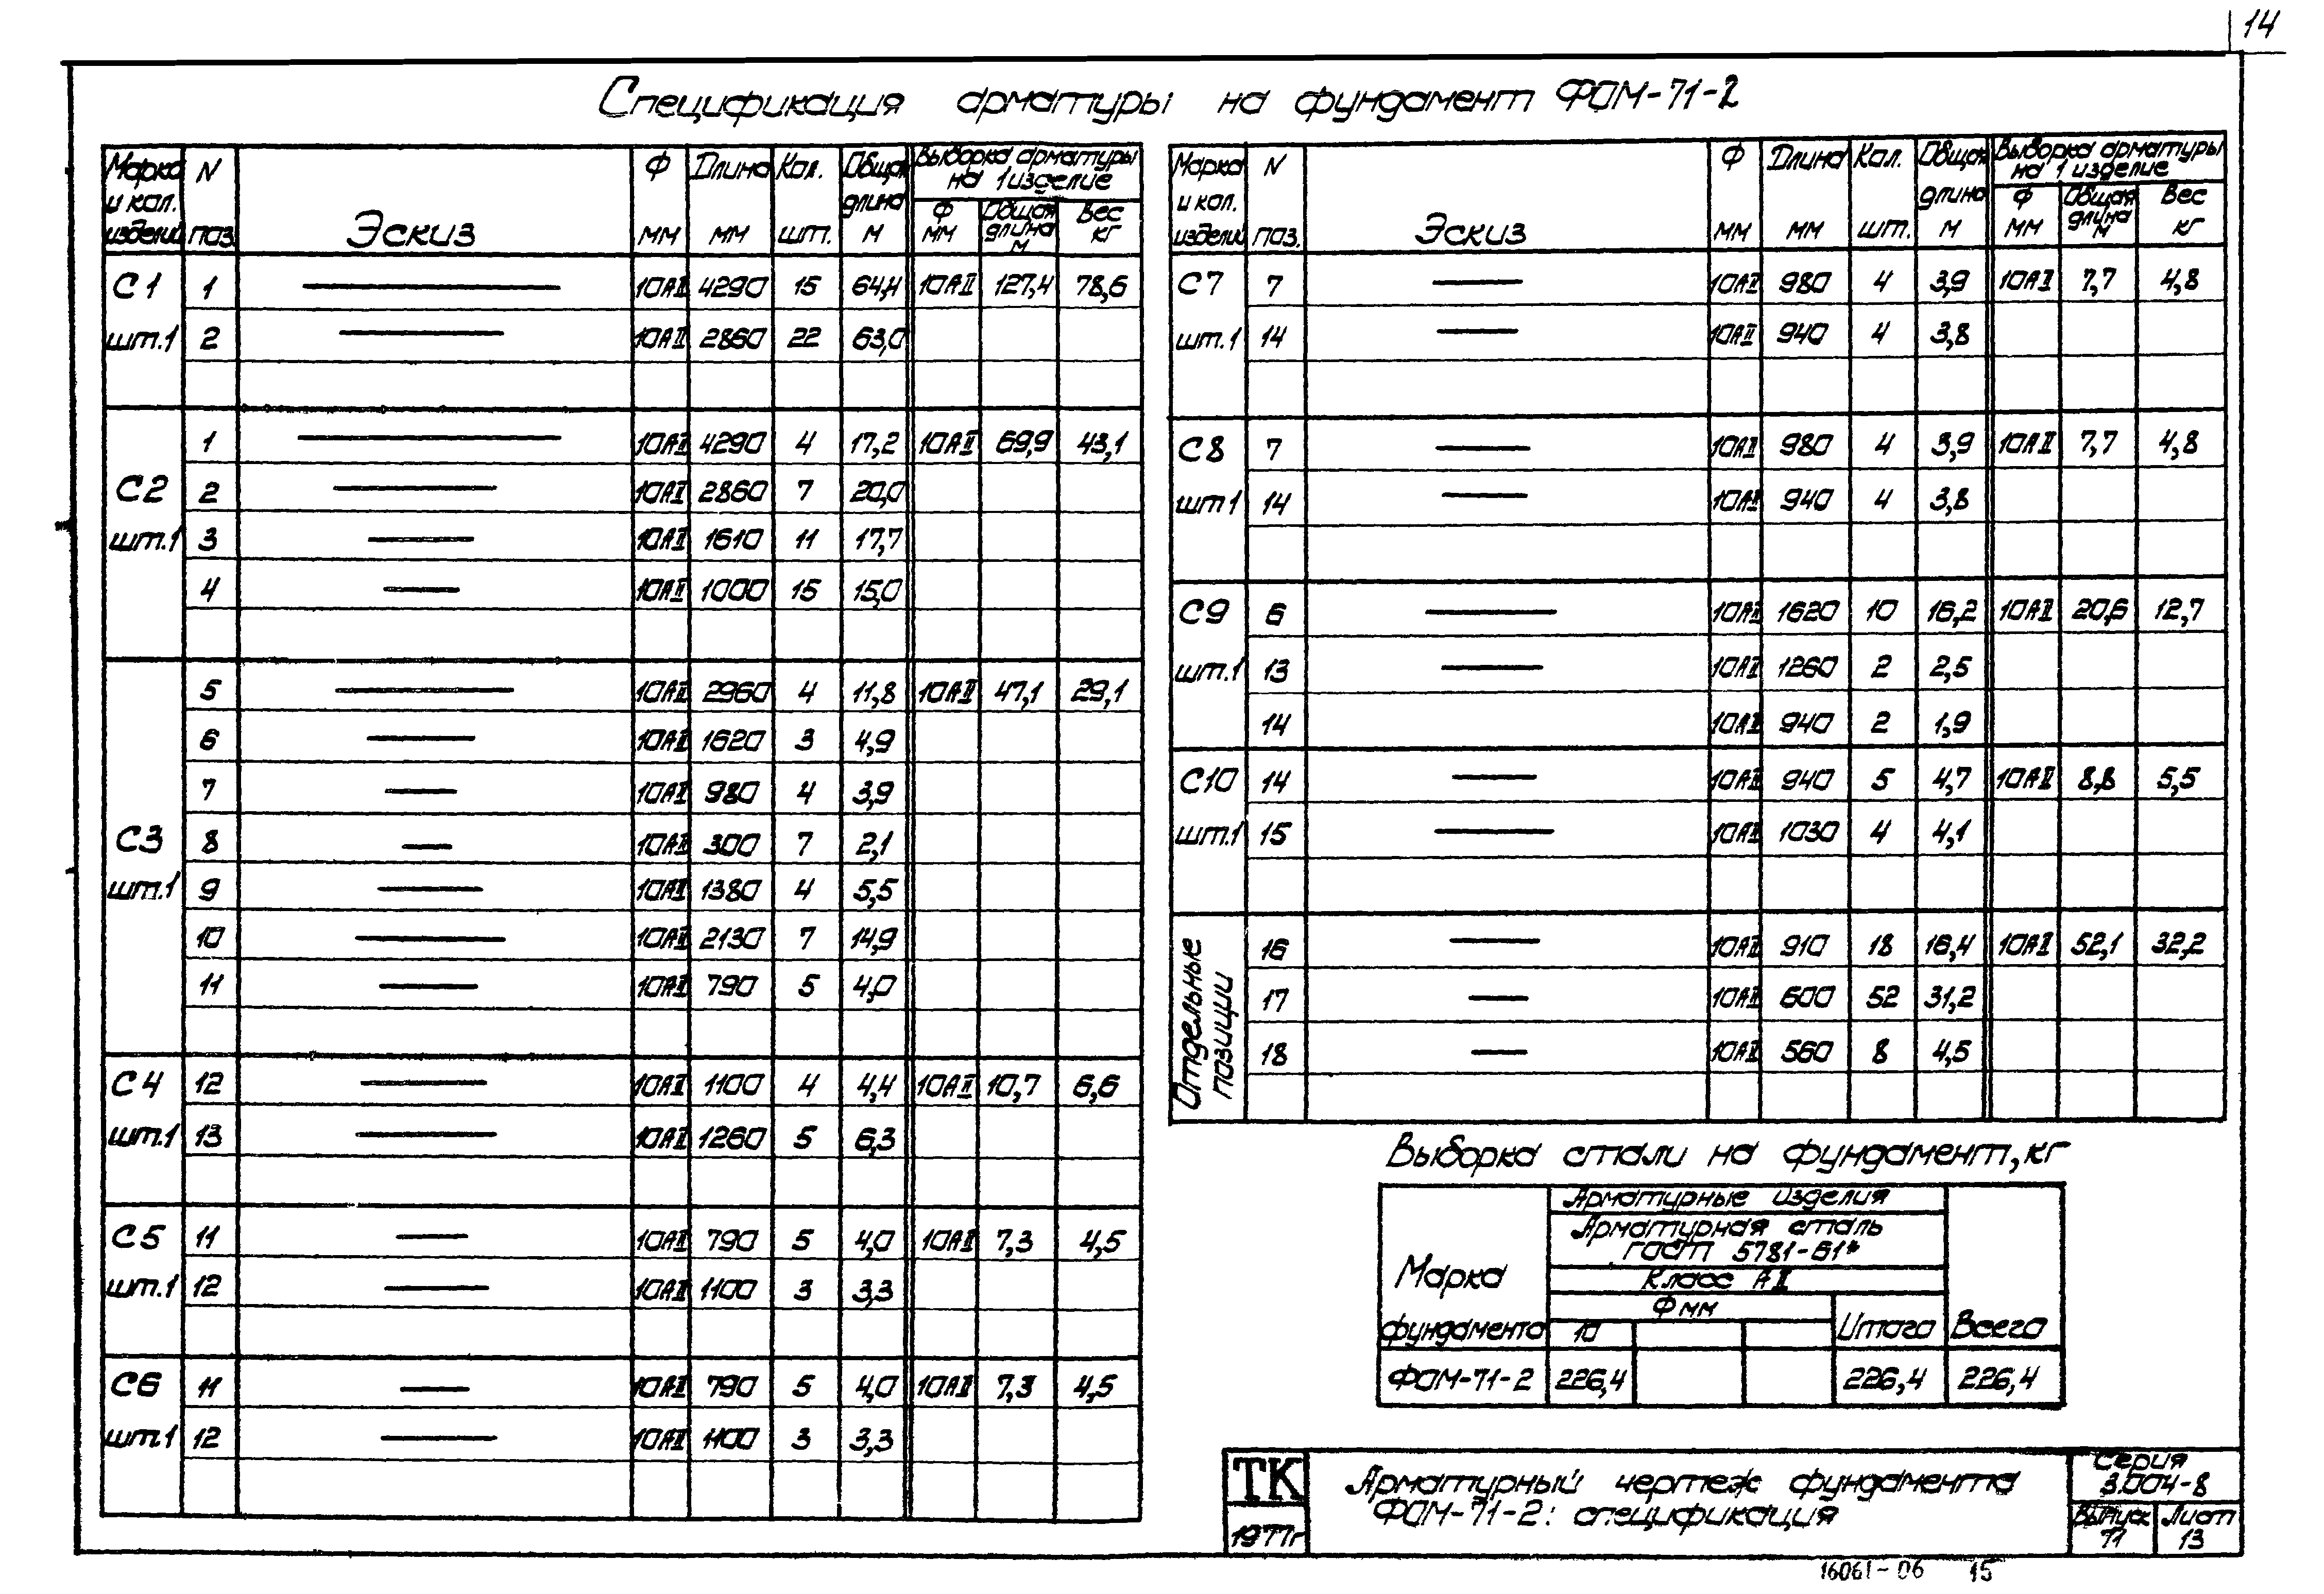 14
Спецификация арматуры на фундамент ФОМ-71-2
Марка и кол. изделий N поз. Эскиз Ф мм Длина мм Кол. шт. Общая длина м Выборка арматуры на 1 изделие Ф мм Общая длина м Вес кг
С1 шт.1 1 10АII 4290 15 64,4 10АII 127,4 78,6
2 10АII 2860 22 63,0
С2 шт.1 1 10АII 4290 4 17,2 10АII 69,9 43,1
2 10АII 2860 7 20,0
3 10АII 1610 11 17,7
4 10АII 1000 15 15,0
С3 шт.1 5 10АII 2960 4 11,8 10АII 47,1 29,1
6 10АII 1620 3 4,9
7 10АII 980 4 3,9
8 10АII 300 7 2,1
9 10АII 1380 4 5,5
10 10АII 2130 7 14,9
11 10АII 790 5 4,0
С4 шт.1 12 10АII 1100 4 4,4 10АII 10,7 6,6
13 10АII 1260 5 6,3
С5 шт.1 11 10АII 790 5 4,0 10АII 7,3 4,5
12 10АII 1100 3 3,3
С6 шт.1 11 10АII 790 5 4,0 10АII 7,3 4,5
12 10АII 1100 3 3,3
Марка и кол. изделий N поз. Эскиз Ф мм Длина мм Кол. шт. Общая длина м Выборка арматуры на 1 изделие Ф мм Общая длина м Вес кг
С7 шт.1 7 10АII 980 4 3,9 10АII 7,7 4,8
14 10АII 940 4 3,8
С8 шт1 7 10АII 980 4 3,9 10АII 7,7 4,8
14 10АII 940 4 3,8
С9 шт.1 6 10АII 1620 10 16,2 10АII 20,6 12,7
13 10АII 1260 2 2,5
14 10АII 940 2 1,9
С10 шт.1 14 10АII 940 5 4,7 10АII 8,8 5,5
15 10АII 1030 4 4,1
Отдельные позиции 16 10АII 910 18 16,4 10АII 52,1 32,2
17 10АII 600 52 31,2
18 10АII 560 8 4,5
Выборка стали на фундамент, кг
Марка фундамента
Арматурные изделия
Арматурная сталь
ГОСТ 5781-61*
Класс АII
Ф мм
10 Итого Всего
ФОМ-71-2 226,4 226,4 226,4
ТК
1977г
Арматурный чертеж фундамента
ФОМ-71-2: спецификация
Серия
3.004-8
Выпуск Лист
71 13
16061-06 15